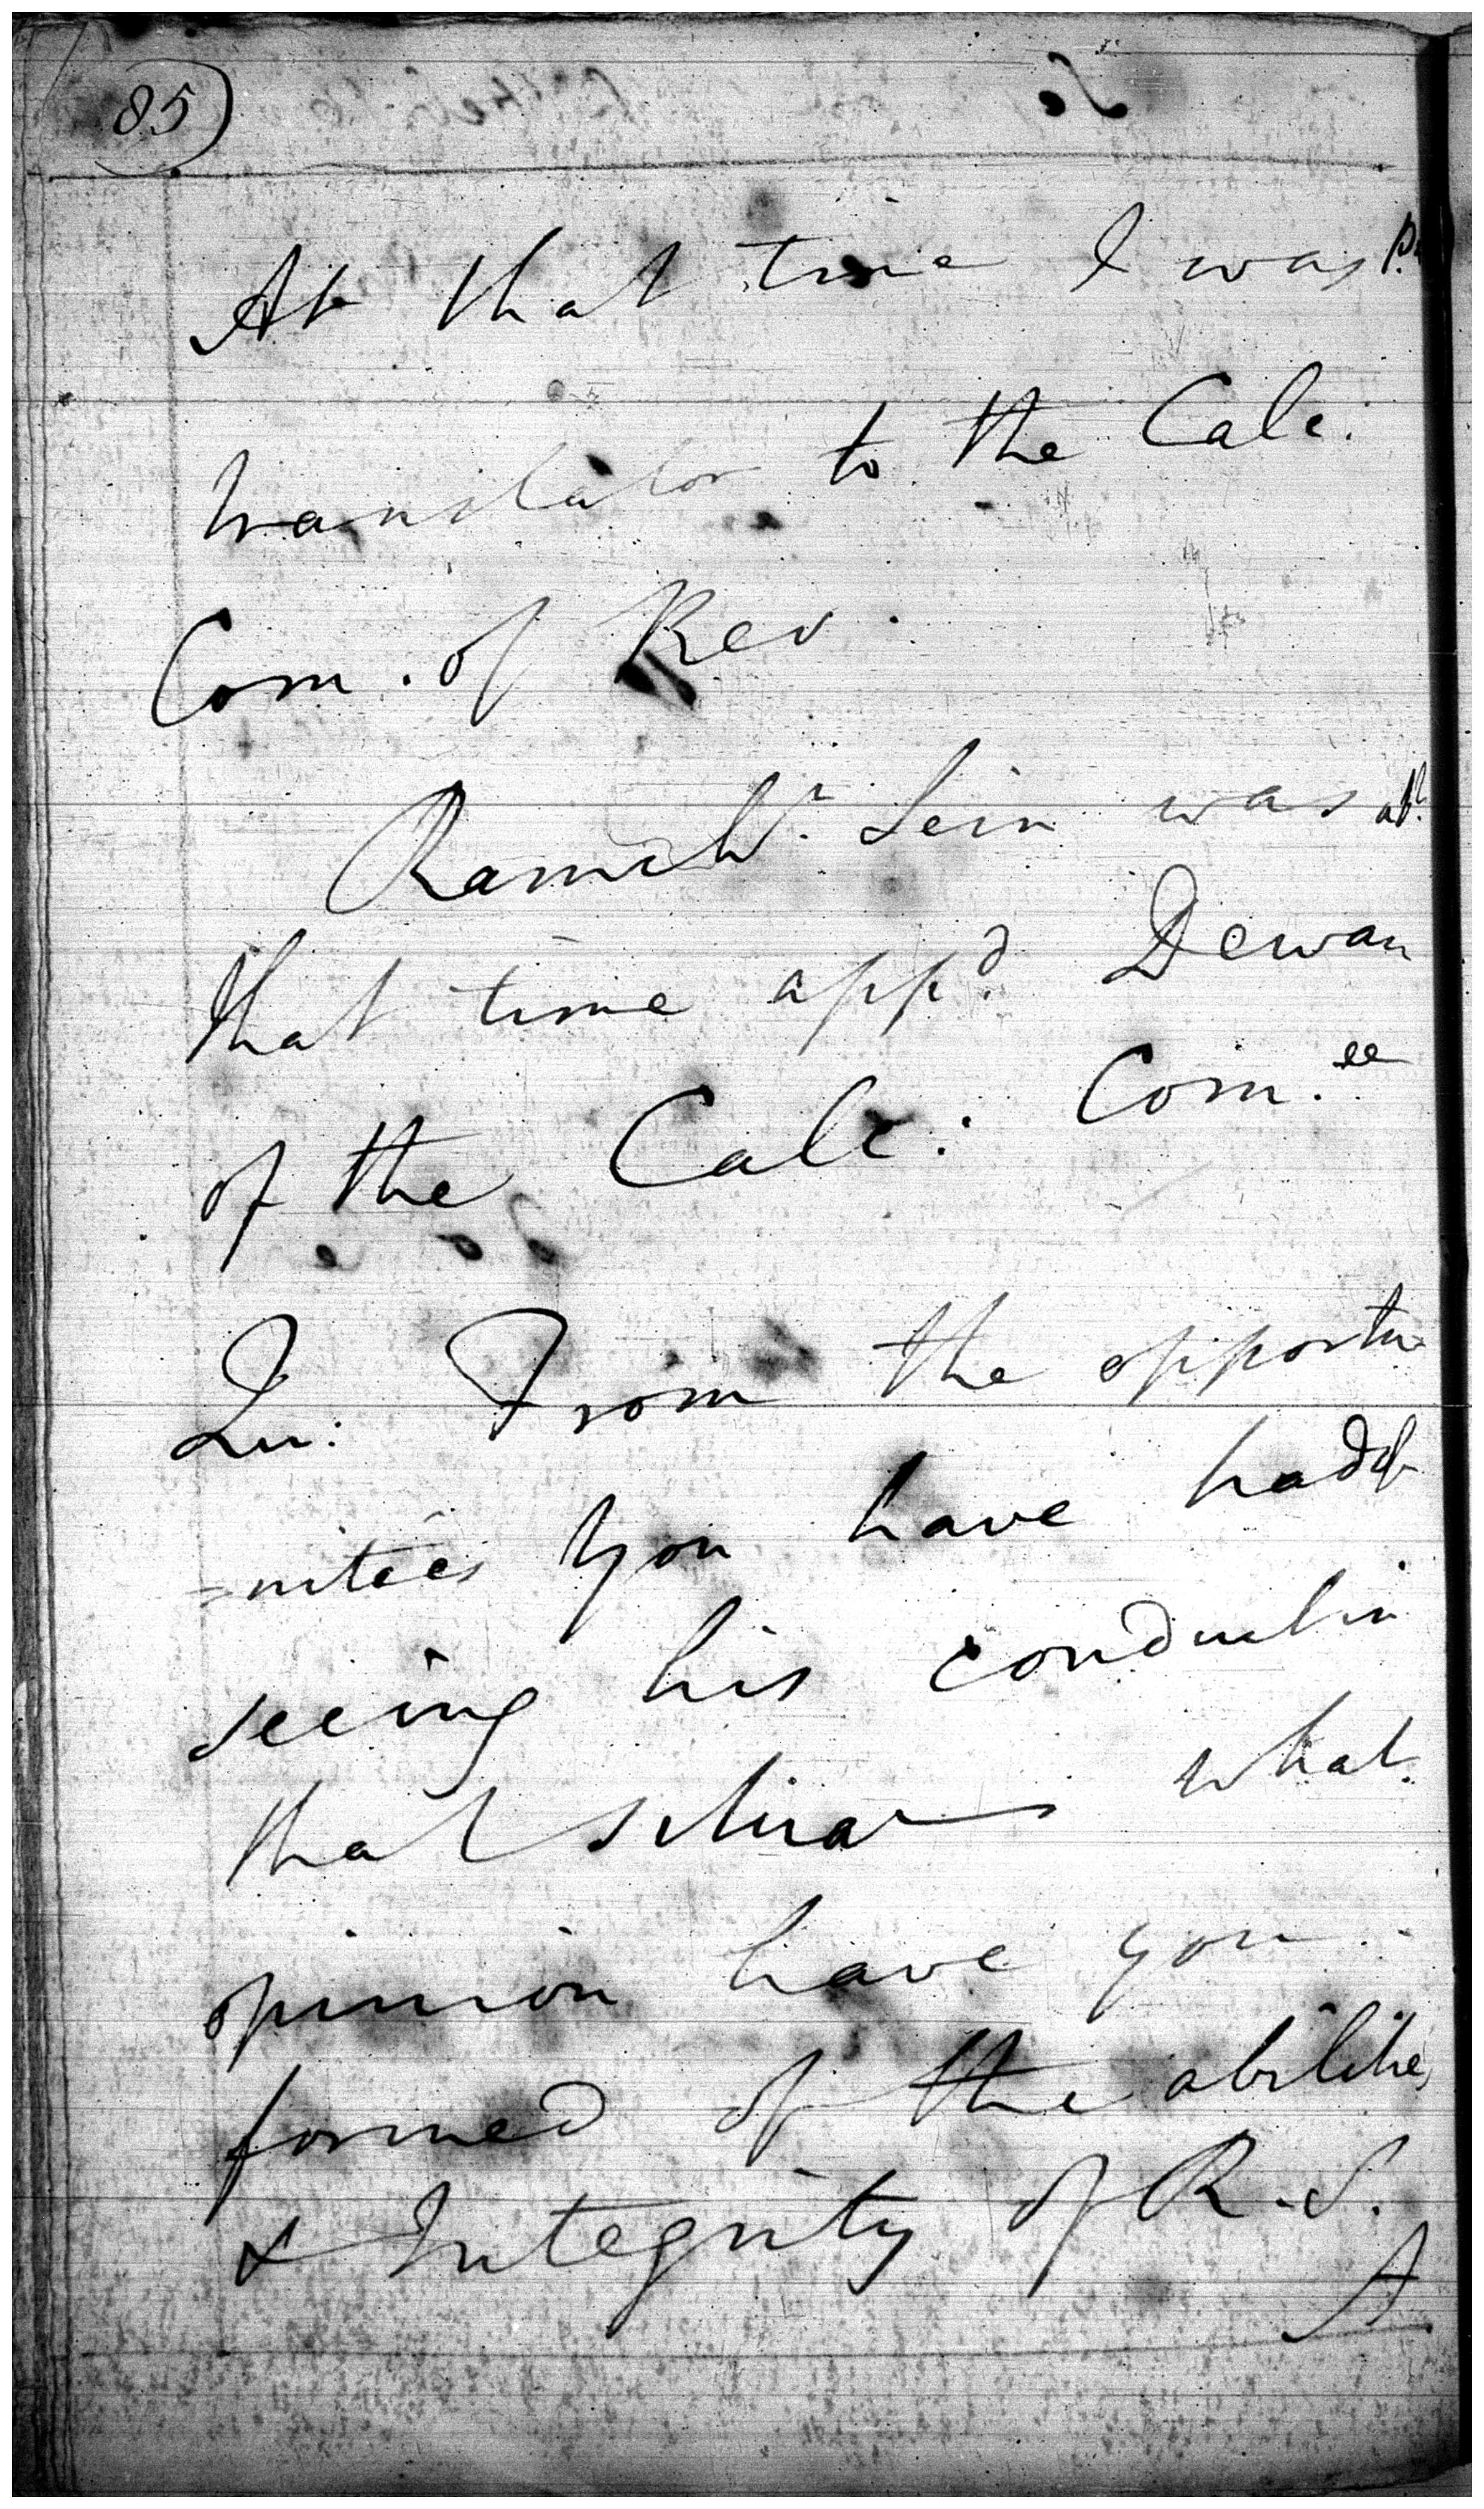 85)
At that time I was P.
translator to the Calc.
Com. of Rev.
Ramch.r Sein was at
that time app.d Dewan
of the Calc: Com.ee
Qu: From the opportu
=nities you have had of
seeing his conduct in
that situa what
opinion have you
formed of the abilities
& Integrity of R. S.
A